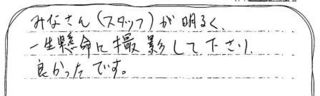 みなさん（スタッフ）が明るく、
一生懸命に撮影して下さり
良かったです。